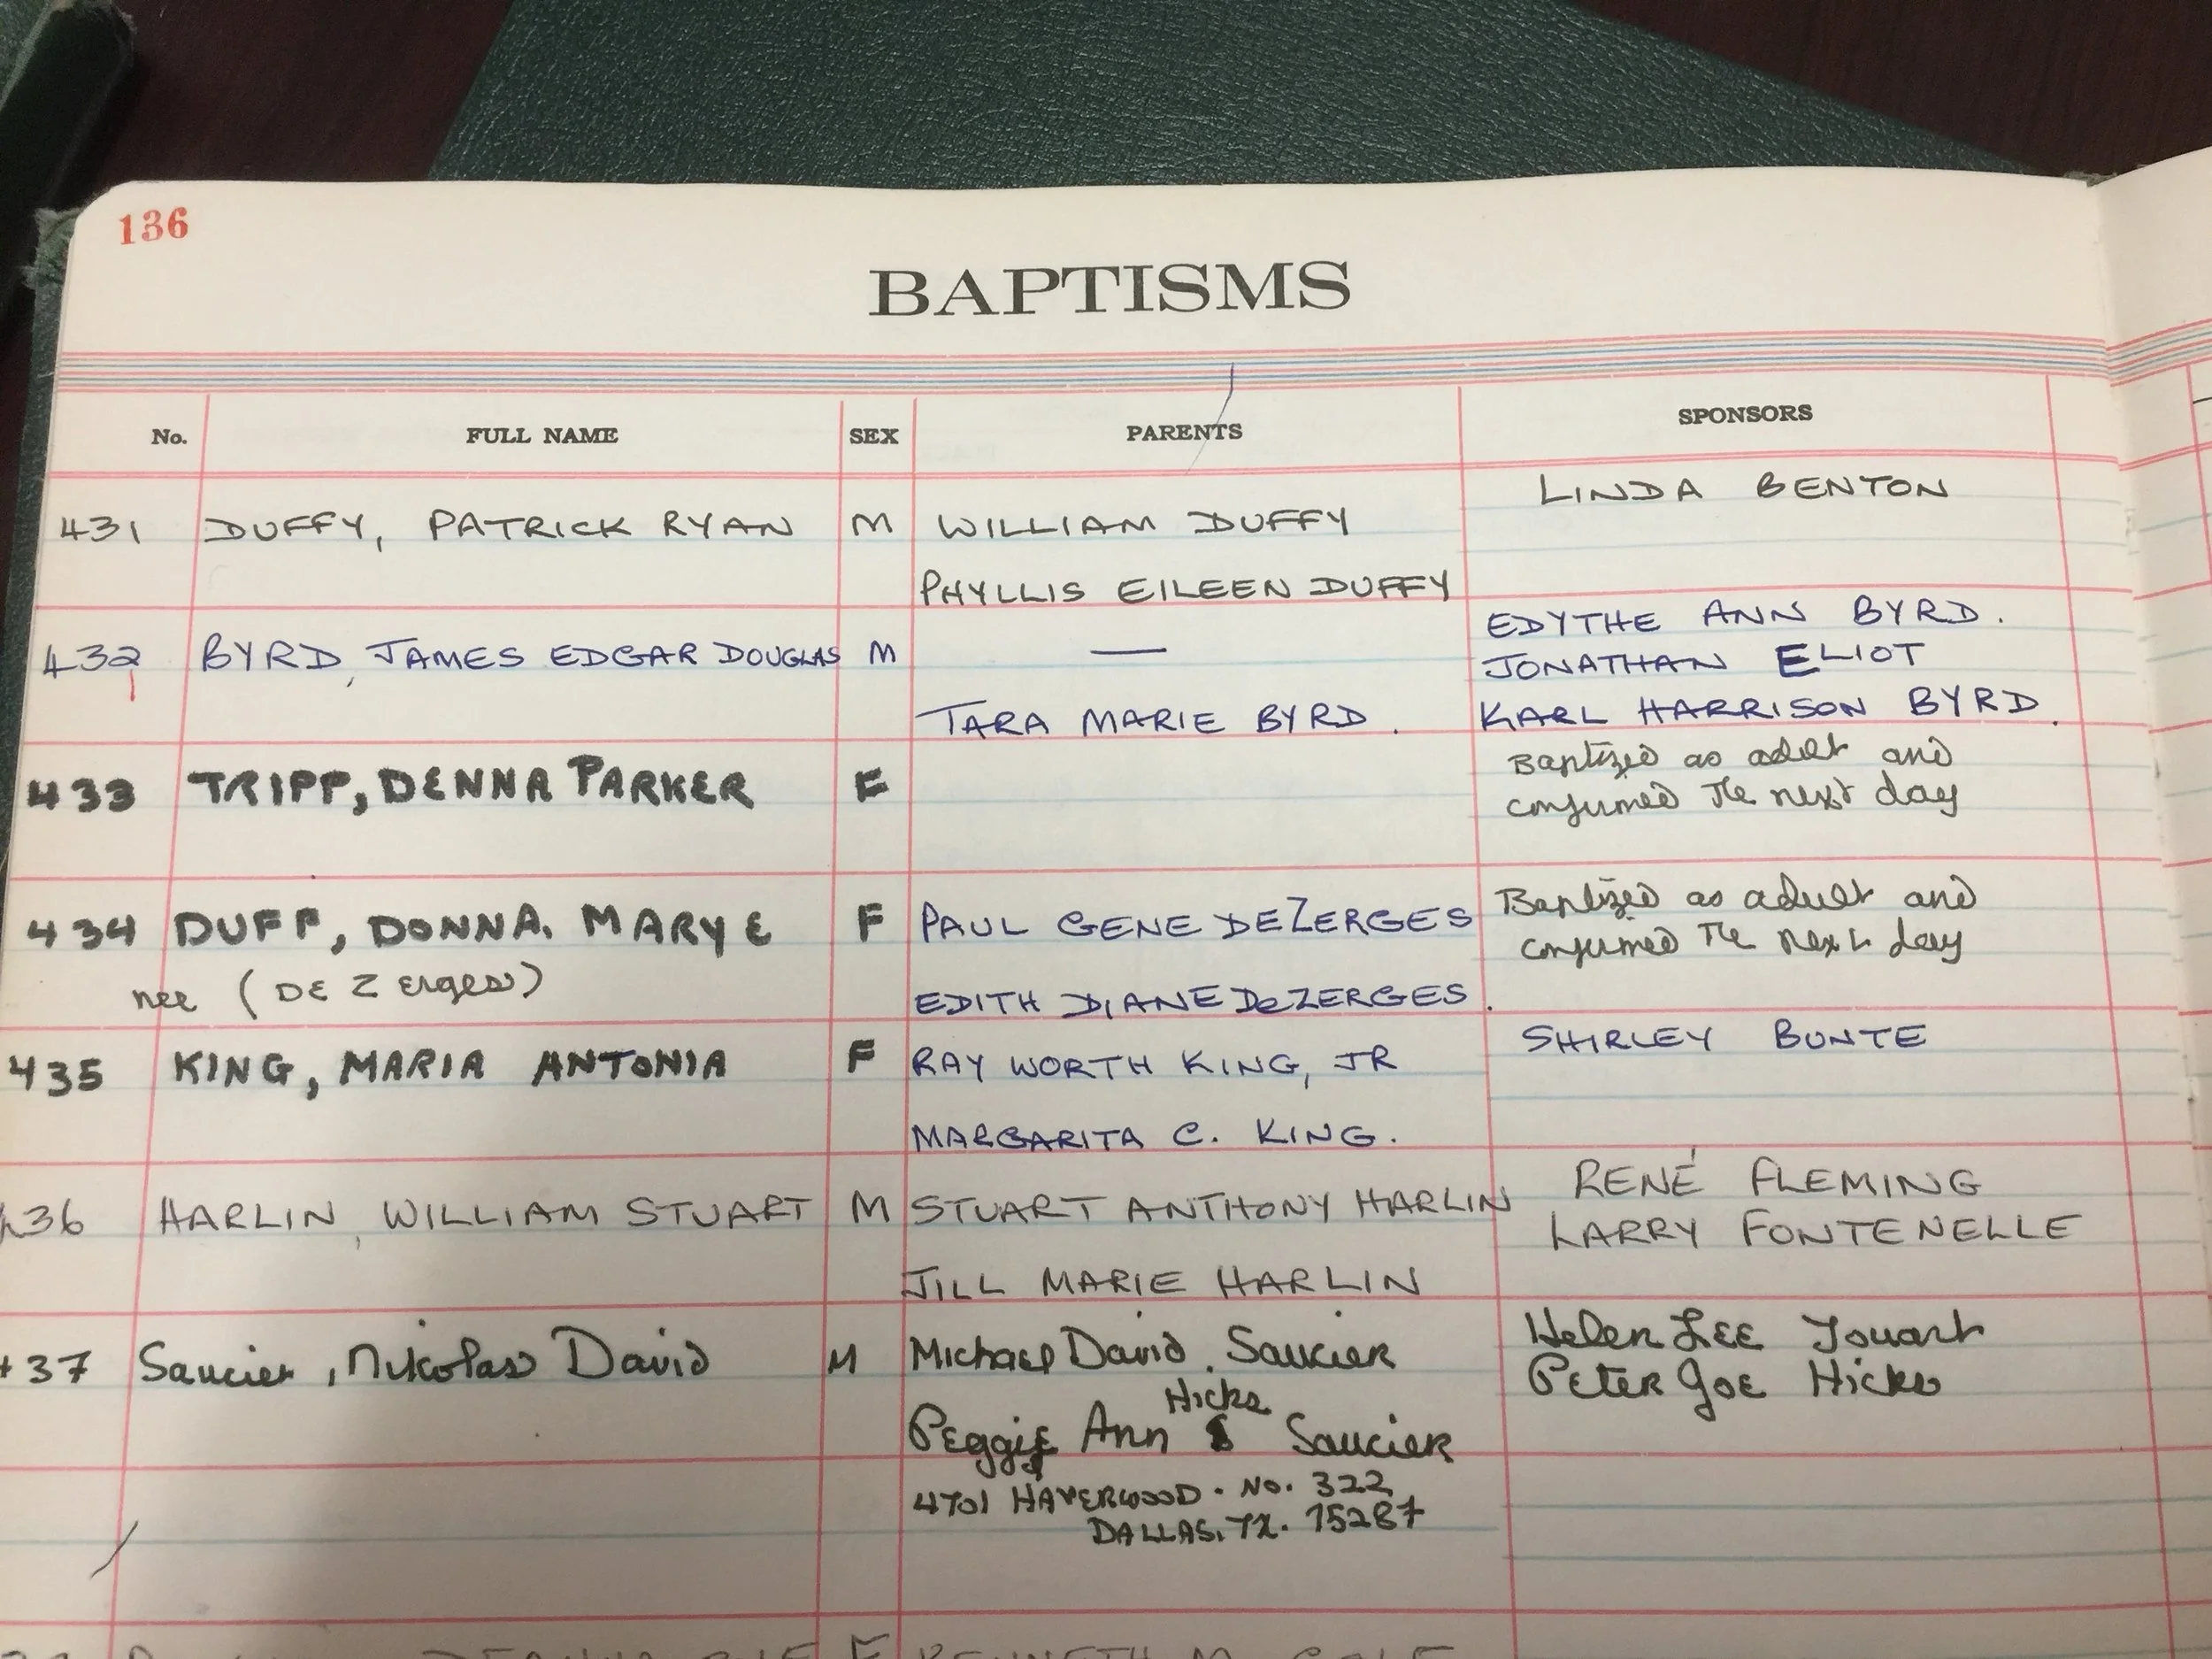 136
BAPTISMS
No. FULL NAME SEX PARENTS SPONSORS
431 DUFFY, PATRICK RYAN M WILLIAM DUFFY LINDA BENTON
PHYLLIS EILEEN DUFFY
432 BYRD, JAMES EDGAR DOUGLAS M — EDYTHE ANN BYRD.
JONATHAN ELIOT
TARA MARIE BYRD. KARL HARRISON BYRD.
433 TRIPP, DENNA PARKER F Baptized as adult and
confirmed The next day
434 DUFF, DONNA. MARYE F PAUL GENE DEZERGES Baptized as adult and
confirmed The next day
nee (DE Zerges) EDITH DIANE DeZERGES.
435 KING, MARIA ANTONIA F RAY WORTH KING, JR SHIRLEY BUNTE
MARGARITA C. KING.
436 HARLIN, WILLIAM STUART M STUART ANTHONY HARLIN RENÉ FLEMING
LARRY FONTENELLE
JILL MARIE HARLIN
37 Saucier, Nikolas David M Michael David. Saucier Helen LEE Touart
Peter Joe Hicks
Hicks
Peggie Ann Saucier
4701 HAVERWOOD. No. 322
DALLAS, TX. 75287
F KENNETH M.